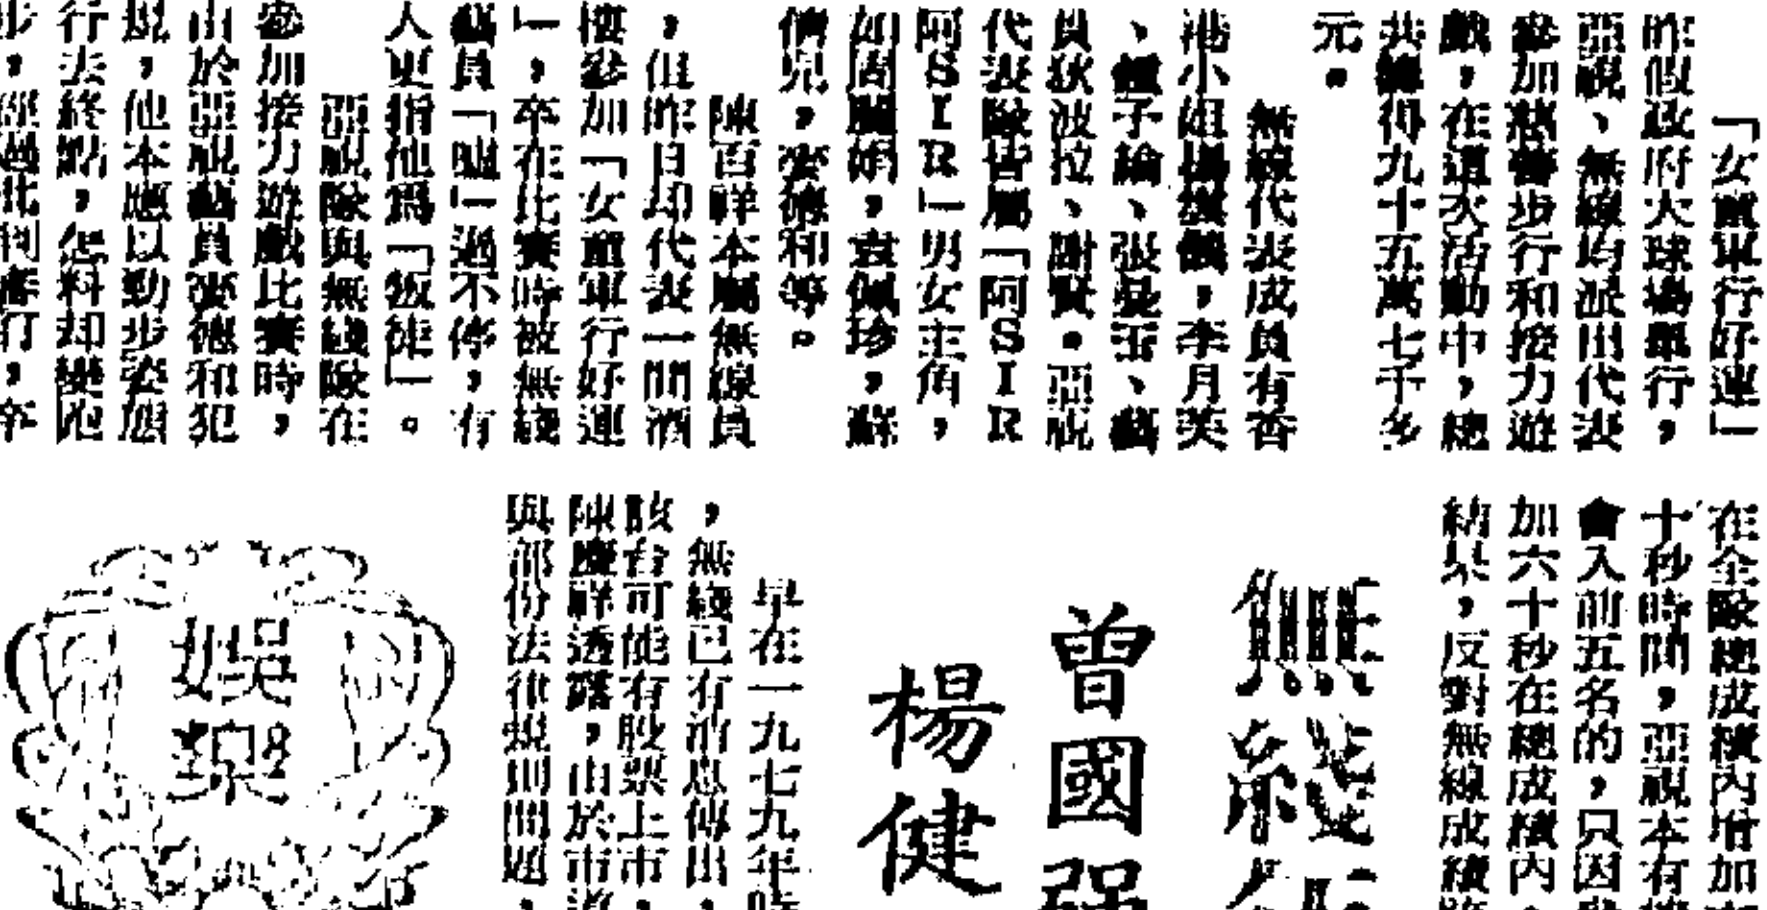 「女童軍行好運」
昨假政府大球場舉行，
亞視、無線均派出代表
參加慈善步行和接力遊
戲，在這次活動中，總
共總得九十五萬七千多
元。
無線代表成員有香
港小姐楊雪儀，李月英
、鍾子綸、張曼玉、藝
員狄波拉、謝賢。亞視
代表隊皆屬「阿SIR
阿SIR」男女主角，
如周麗娟，袁佩珍，蘇
儀兒，麥德和等。
陳百祥本屬無線員
，但昨日却代表一間酒
樓參加「女童軍行好運
」，卒在比賽時被無綫
藝員「噓」過不停，有
人更指他爲「叛徒」。
亞視隊與無綫隊在
參加接力遊戲比賽時，
由於亞視藝員麥德和犯
規，他本應以動步姿態
行去終點，怎料却變跑
步，經過批判審打，卒
在全隊總成績內增加
十秒時間，亞視本有
會入前五名的，只因
加六十秒在總成績內
結果，反對無線成績
無綫
曾國强
楊健
早在一九七九年時
，無綫已有消息傳出，
該台可能有股票上市，
陳慶祥透露，由於市
與部份法律規則問題，
娛樂